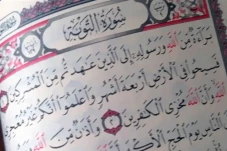 سُورَةُ التَّوْبَةِ
بَرَاءَةٌ مِّنَ اللَّهِ وَرَسُولِهِ إِلَى الَّذِينَ عَاهَدتُّم مِّنَ الْمُشْرِكِينَ ١
فَسِيحُوا فِي الْأَرْضِ أَرْبَعَةَ أَشْهُرٍ وَاعْلَمُوا أَنَّكُمْ غَيْرُ مُعْجِزِي
اللَّهِ وَأَنَّ اللَّهَ مُخْزِي الْكَافِرِينَ ٢ وَأَذَانٌ مِّنَ
النَّاسِ يَوْمَ الْحَجِّ الْأَكْبَرِ أَنَّ اللَّهَ